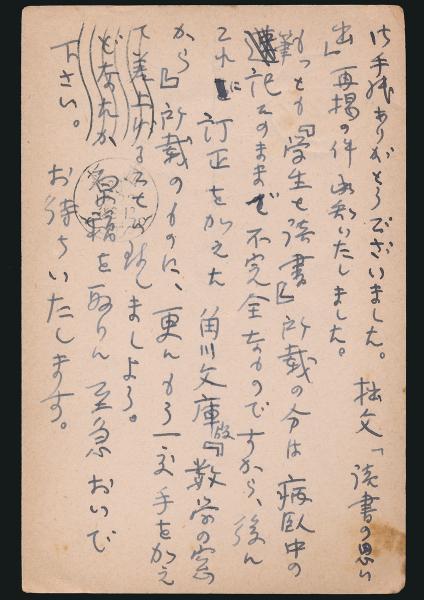 お手紙ありがとうございました。拙文「読書の思い
出」再掲の件承知いたしました。
もっとも『学生と読書』所載の分は病臥中の
筆記そのままで不完全なものですから、後に
これに訂正を加えた角川文庫版『数学の窓
から』所載のものに、更にもう一度手をかえ
て差上げることに致しましょう。
どなたか 原稿を取りに至急おいで
下さい。お待ちいたします。